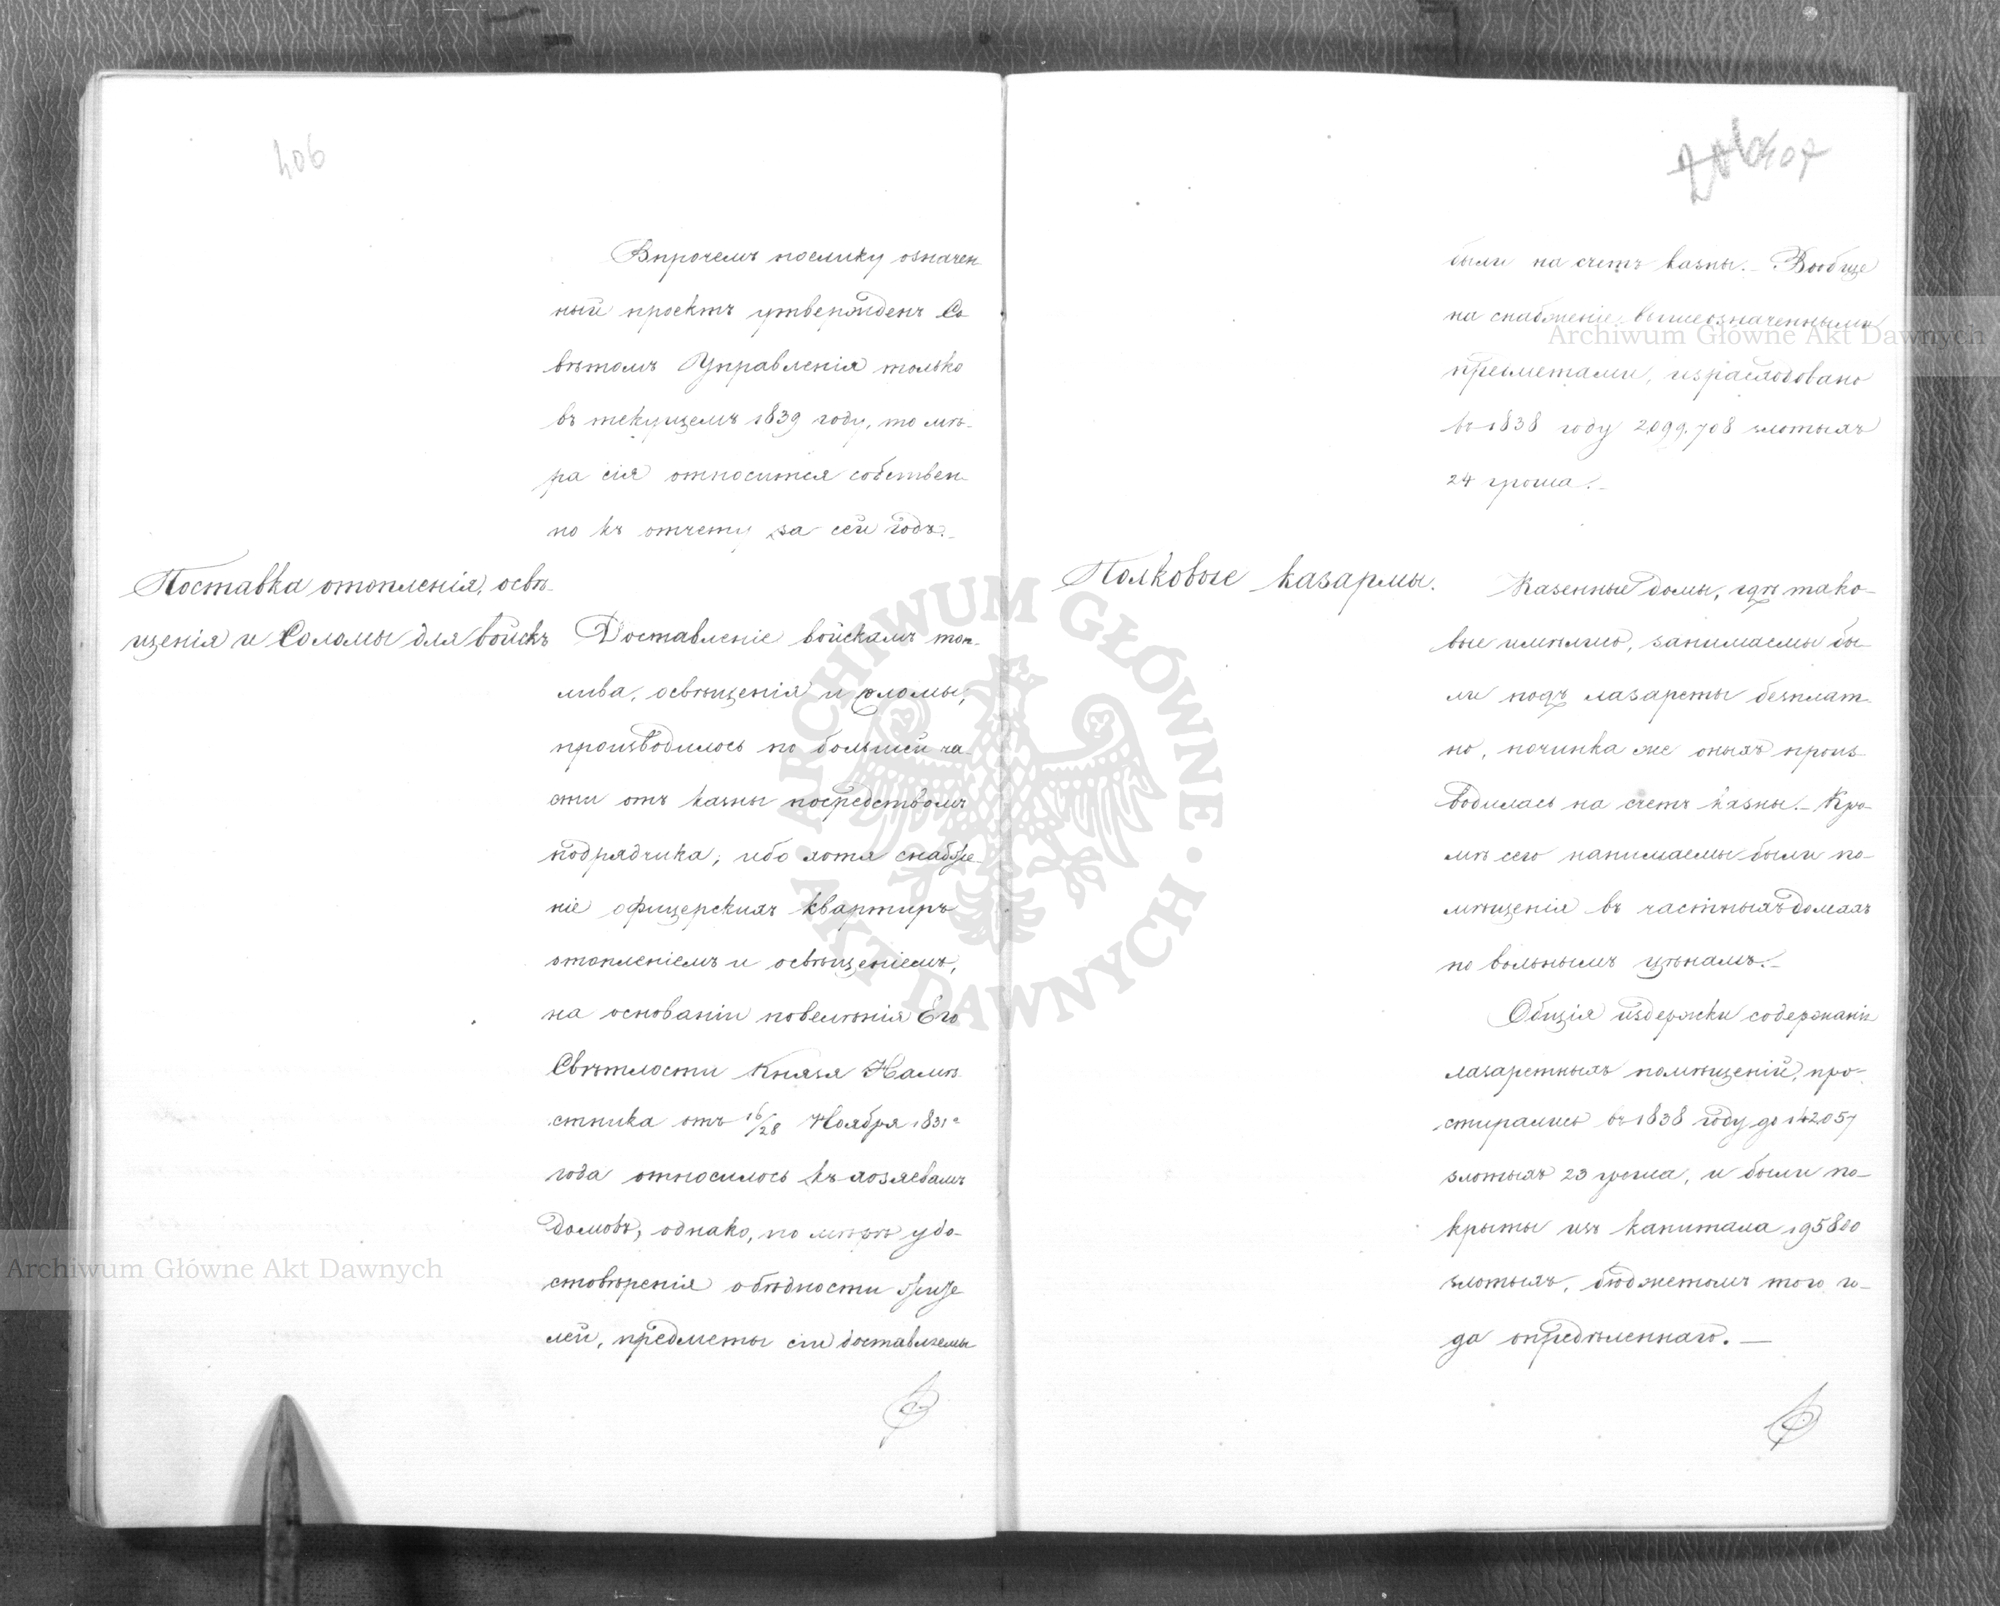 406
Впрочемъ поелику означен-
ный проектъ утвержденъ Со
вѣтомъ Управленія только
въ текущемъ 1839 году, то мѣ-
ра сія относится собствен-
но къ отчету за сей годъ.-
Поставка отопленія, освѣ-
щенія и Соломы для войскъ
Доставленіе войскамъ топ-
лива, освѣщенія и соломы,
производилось по большей ча-
сти отъ казны посредствомъ
подрядчика; ибо хотя снабже-
ніе офицерскихъ квартиръ
отопленіемъ и освѣщеніемъ,
на основаніи повелѣнія Его
Свѣтлости Князя Намѣ-
стника отъ 16/28 Ноября 1831го
года относилось къ хозяевамъ
домовъ, однако, по мѣрѣ удо-
стовѣренія о бѣдности жите
лей, предметы сіи доставляемы
407
были на счетъ казны.- Вообще
на снабженіе вышеозначенными
предметами, израсходовано
въ 1838 году 2,099,708 злотыхъ
24 гроша.-
Полковые казармы.
Казенные домы, гдѣ тако-
вые имѣлись, занимаемы бы-
ли подъ лазареты безплат-
но, починка же оныхъ произ-
водилась на счетъ казны.- Кро-
мѣ сего нанимаемы были по-
мѣщенія въ частныхъ домахъ
по вольнымъ цѣнамъ.-
Общія издержки содержанія
лазаретныхъ помѣщеній, про-
стирались въ 1838 году до 142057
злотыхъ 23 гроша, и были по-
крыты изъ капитала 195800
злотыхъ, бюджетомъ того го-
да опредѣленнаго.-
Archiwum Główne Akt Dawnych
Archiwum Główne Akt Dawnych
ARCHIWUM GŁÓWNE · AKT DAWNYCH ·